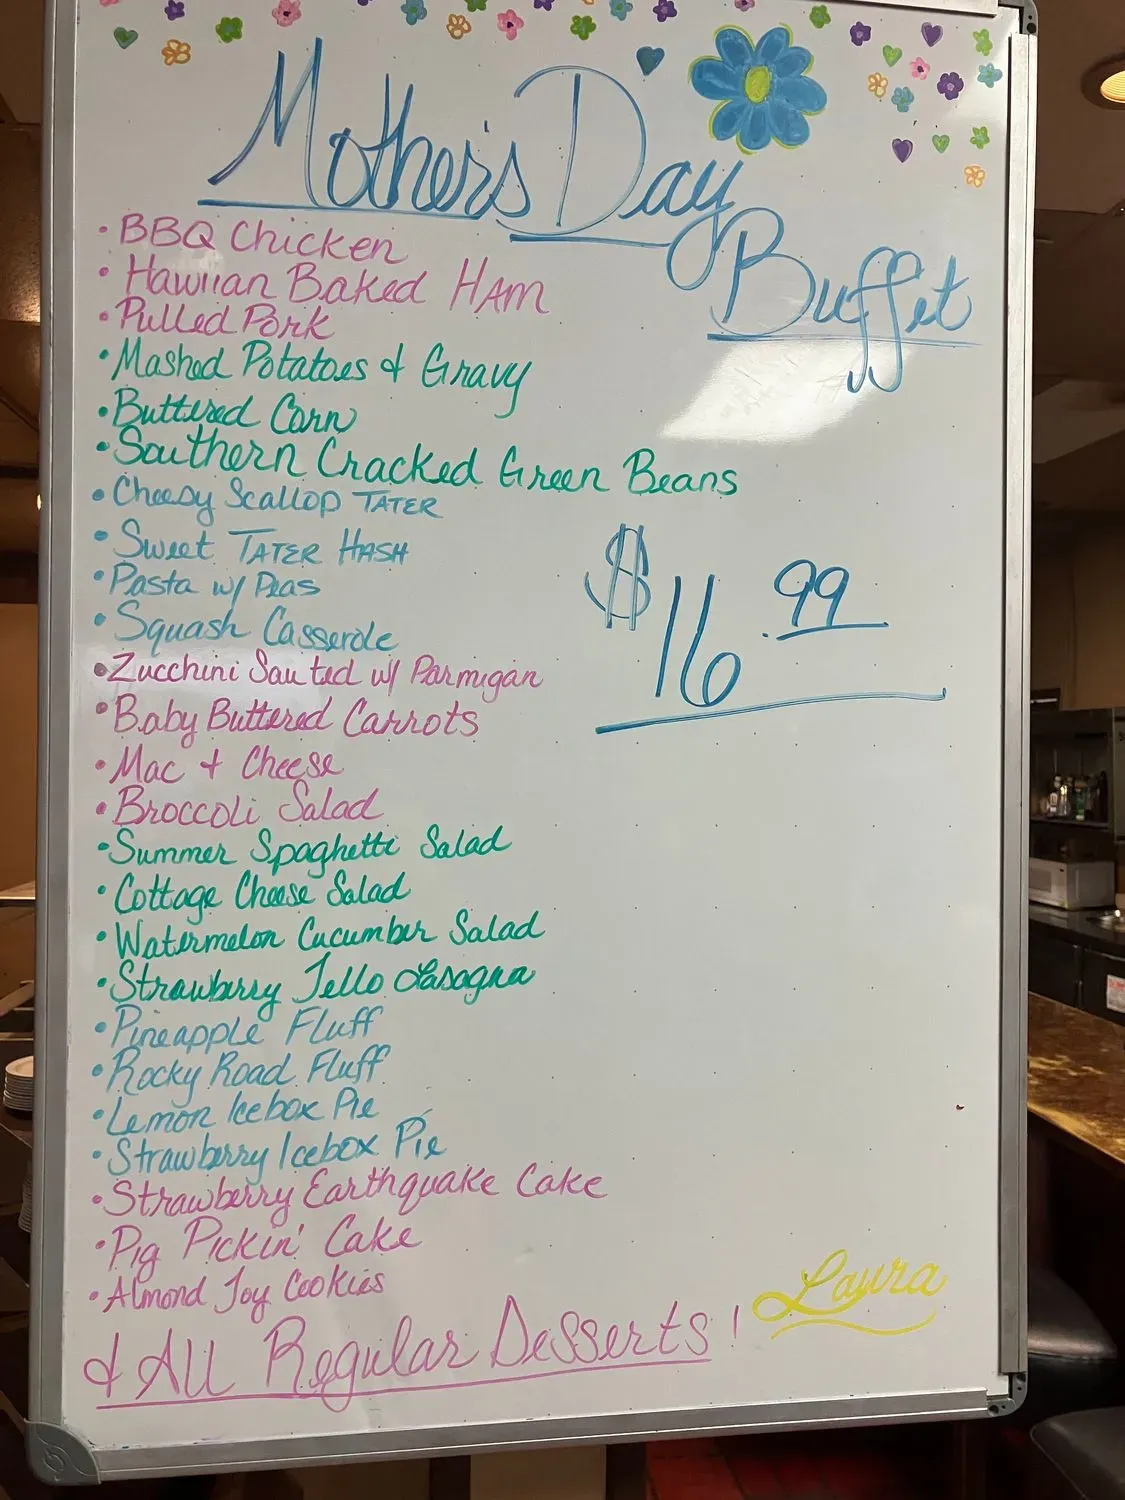 Mother's Day
Buffet
• BBQ Chicken
• Hawiian Baked HAm
• Pulled Pork
• Mashed Potatoes & Gravy
• Buttered Corn
• Southern Cracked Green Beans
• Cheesy Scallop TATER
• Sweet TATER HASH
• Pasta w/ Peas
• Squash Casserole
• Zucchini Sauted w/ Parmigan
• Baby Buttered Carrots
• Mac + Cheese
• Broccoli Salad
• Summer Spaghetti Salad
• Cottage Cheese Salad
• Watermelon Cucumber Salad
• Strawberry Jello Lasagna
• Pineapple Fluff
• Rocky Road Fluff
• Lemon Icebox Pie
• Strawberry Icebox Pie
• Strawberry Earthquake Cake
• Pig Pickin' Cake
• Almond Joy Cookies
& All Regular Desserts!
$16.99
Laura